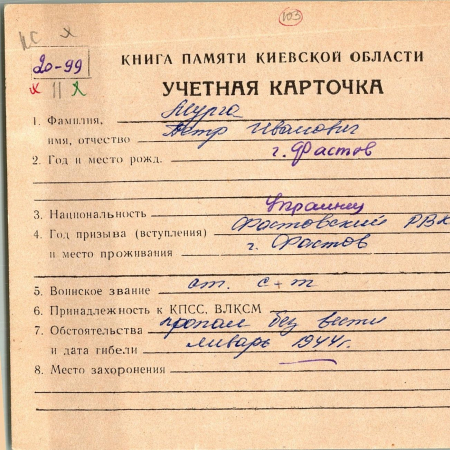 103
20-99
КНИГА ПАМЯТИ КИЕВСКОЙ ОБЛАСТИ
УЧЕТНАЯ КАРТОЧКА
1. Фамилия, Мурга
имя, отчество Петр Иванович
2. Год и место рожд. г. Фастов
3. Национальность украинец
4. Год призыва (вступления) Фастовский РВК
и место проживания г. Фастов
5. Воинское звание ст. с-т
6. Принадлежность к КПСС, ВЛКСМ
7. Обстоятельства пропал без вести
и дата гибели январь 1944г.
8. Место захоронения